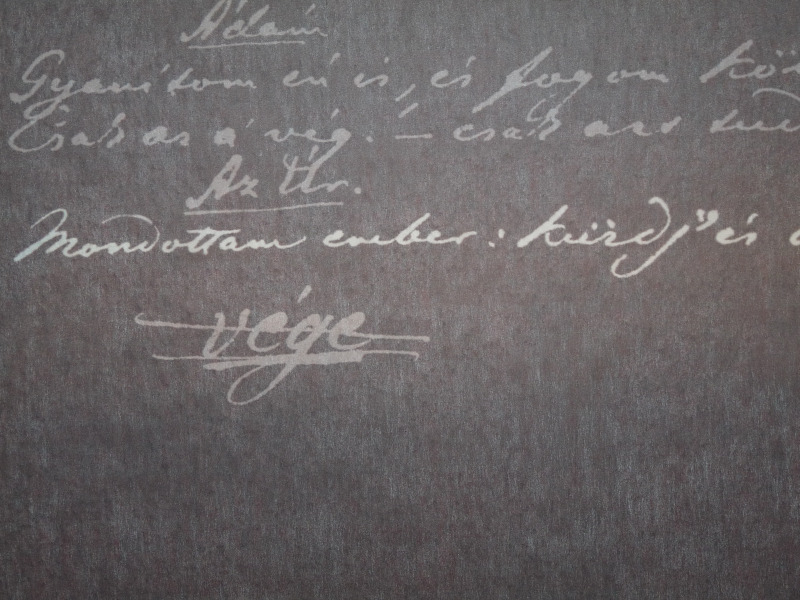 Ádám
Gyanítom én is, és fogom
Csak az a vég! — csak azt
Az Úr.
Mondottam ember: küzdj' és
vége